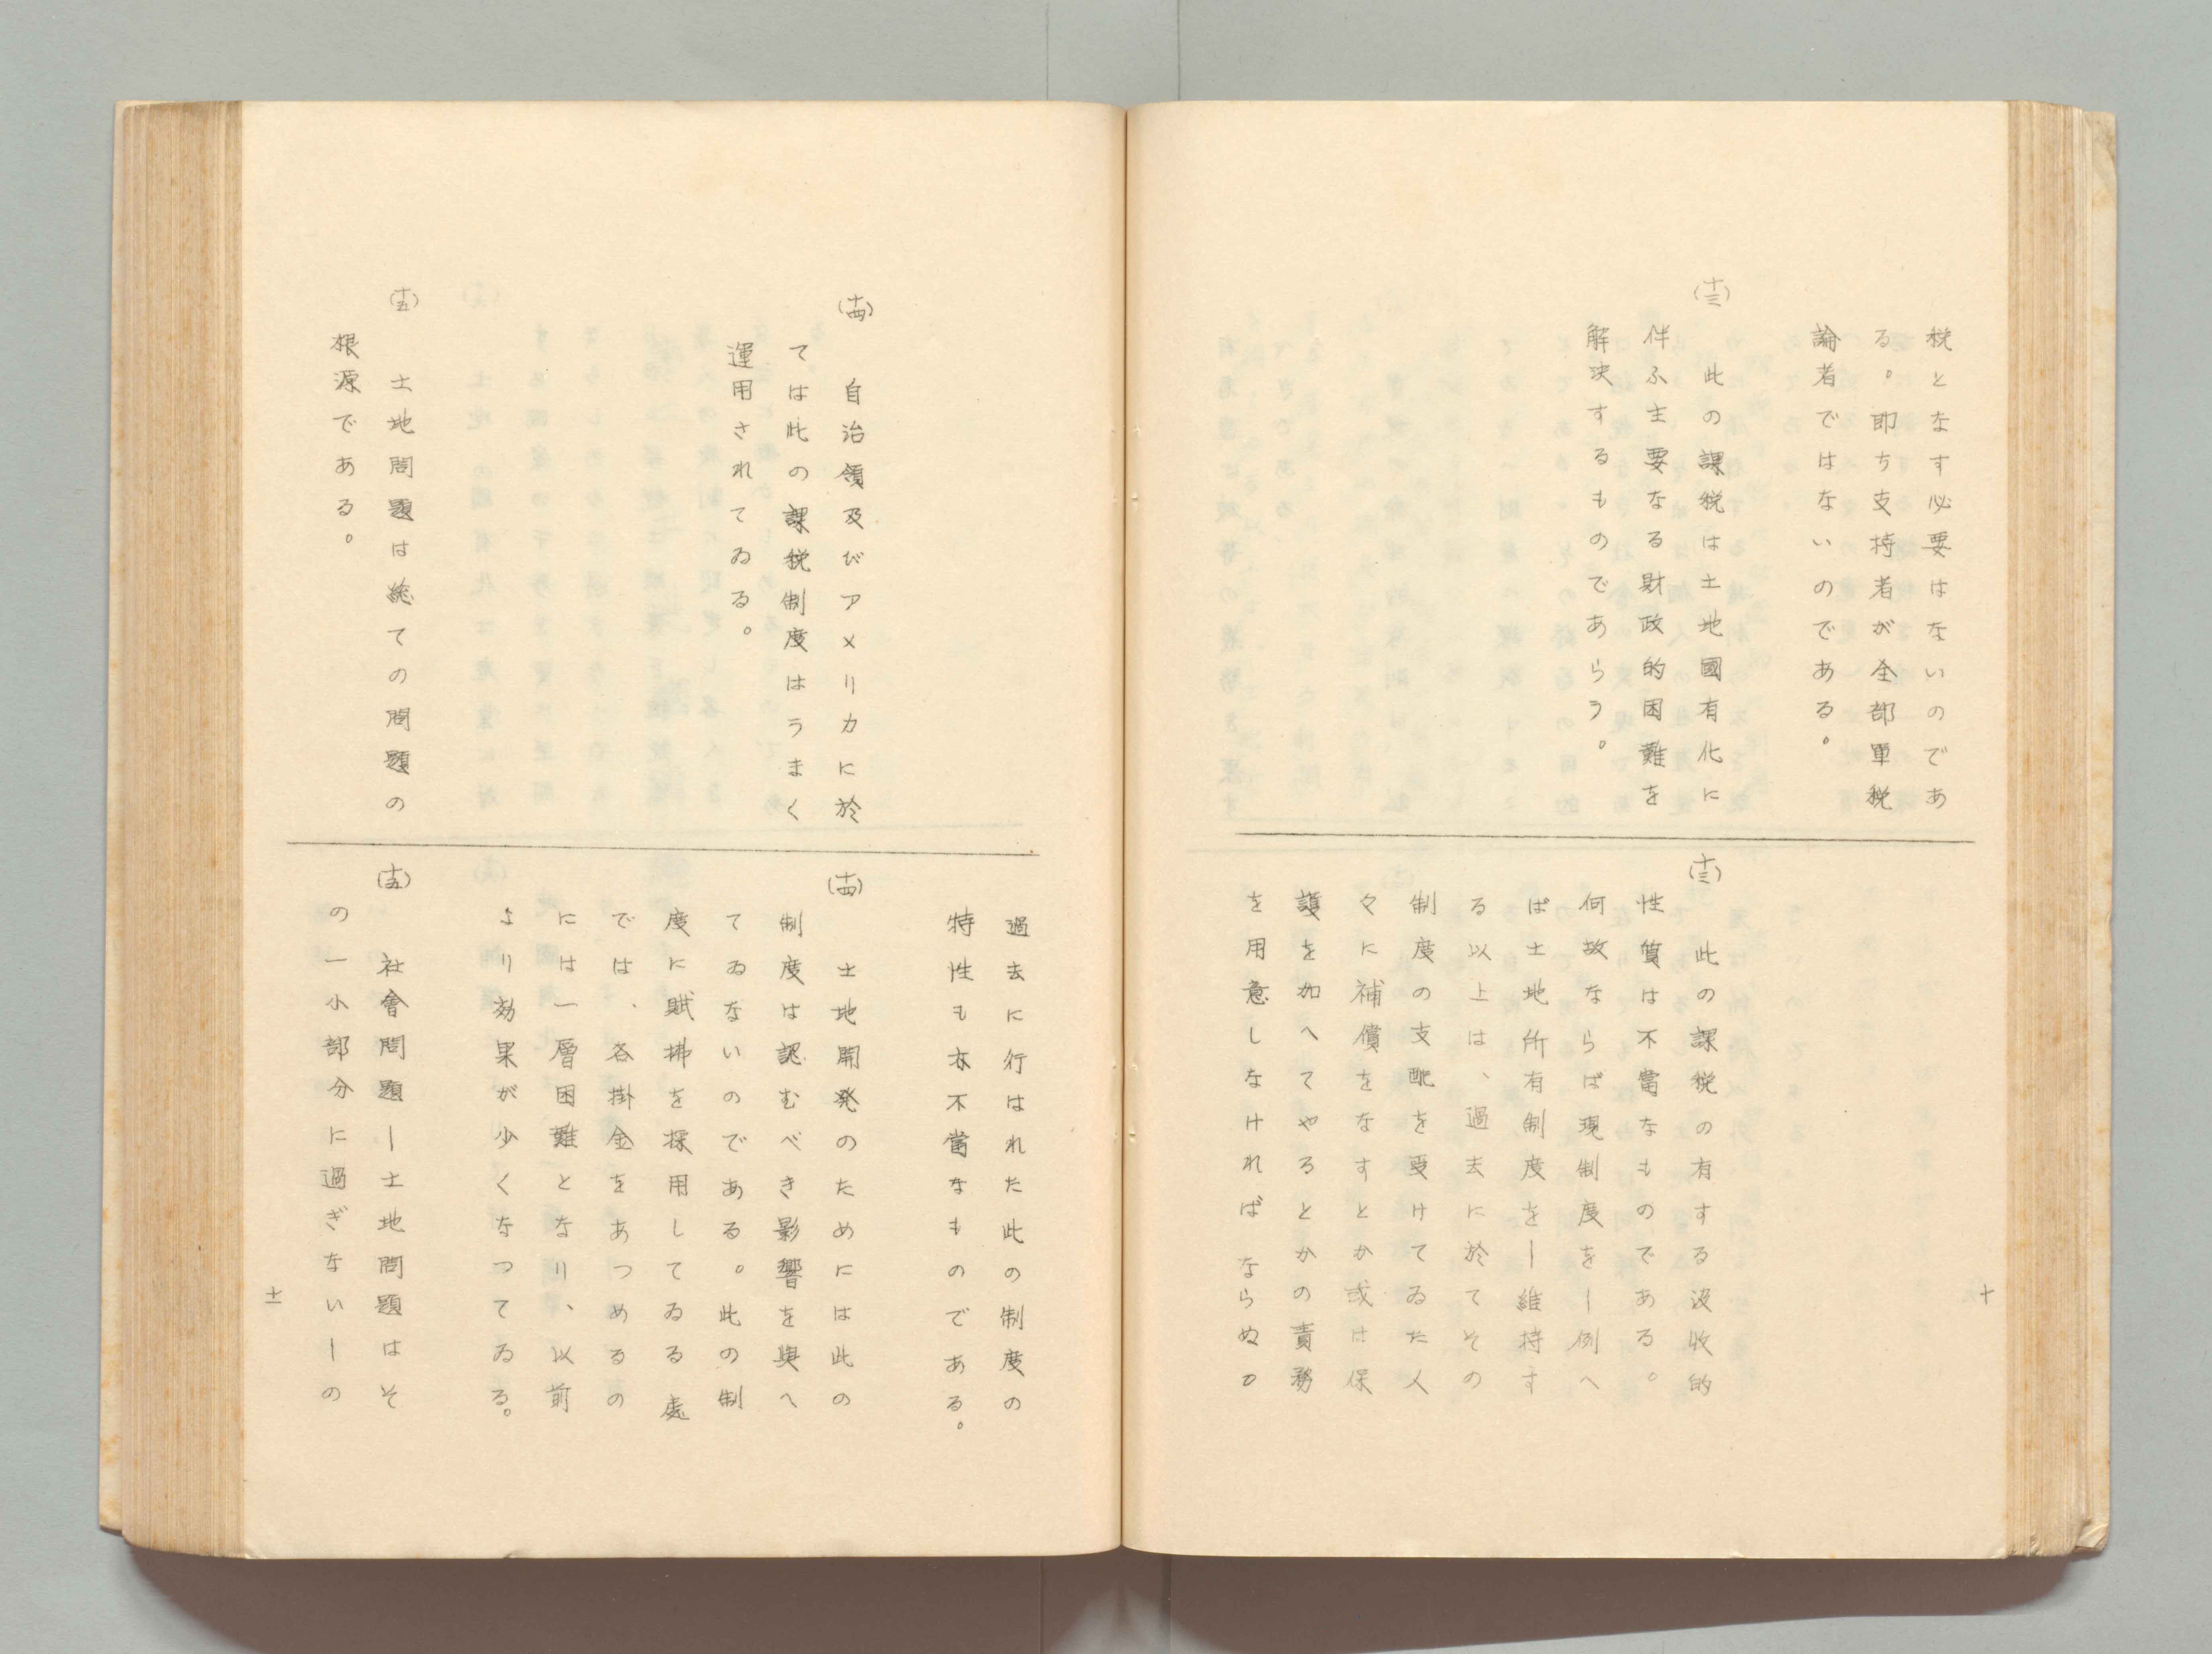 税となす必要はないのであ
る。即ち支持者が全部單税
論者ではないのである。
(十三)
此の課税は土地國有化に
伴ふ主要なる財政的困難を
解決するものであらう。
(十三)
此の課税の有する没收的
性質は不當なものである。
何故ならば現制度を―例へ
ば土地所有制度を―維持す
る以上は、過去に於てその
制度の支配を受けてゐた人
々に補償をなすとか或は保
護を加へてやるとかの責務
を用意しなければならぬの
十
(十四)
自治領及びアメリカに於
ては此の課税制度はうまく
運用されてゐる。
(十五)
土地問題は総ての問題の
根源である。
過去に行はれた此の制度の
特性も亦不當なものである。
(十四)
土地開発のためには此の
制度は認むべき影響を與へ
てゐないのである。此の制
度に賦拂を採用してゐる處
では、各掛金をあつめるの
には一層困難となり、以前
より効果が少くなつてゐる。
(十五)
社會問題―土地問題はそ
の一小部分に過ぎない―の
十一